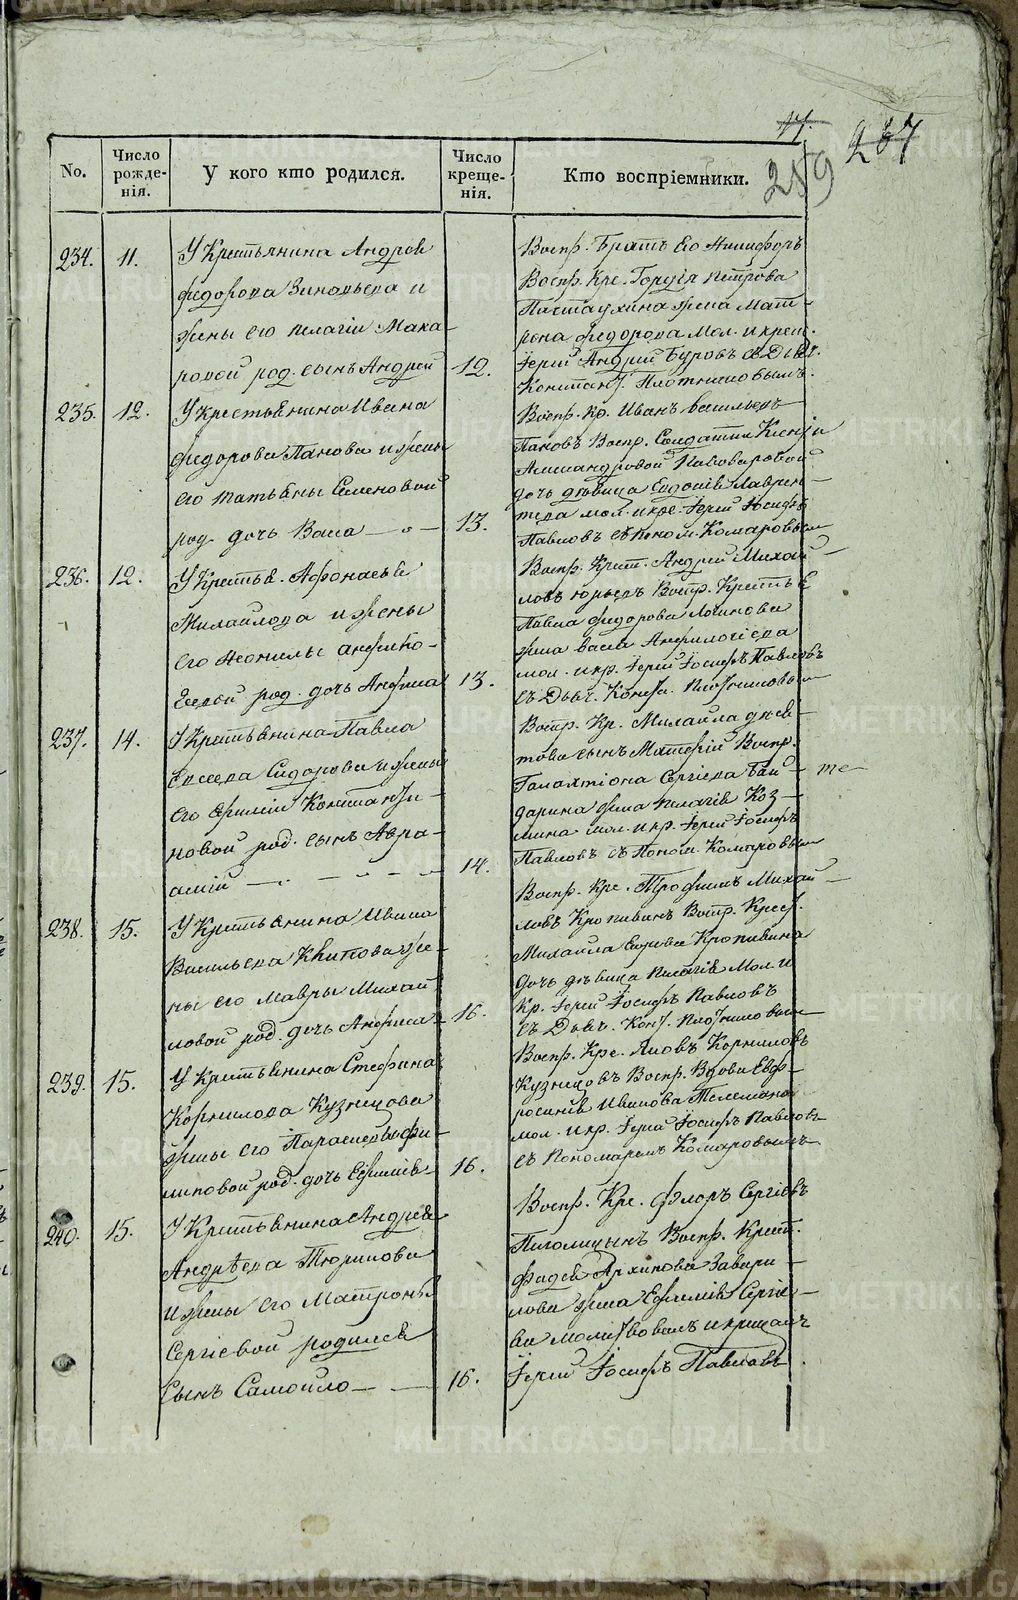 17.
287
289
No.
Число рожде-нія.
У кого кто родился.
Число креще-нія.
Кто воспріемники.
234. 11.
У Крестьянина Андрея
Федорова Зиновьева и
жены его Пелагіи Мака-
ровой род. сынъ Андрей 12.
Воспр. Братъ его Никифоръ
Воспр. Кре. Гордѣя Петрова
Пастаухина жена Мат-
рона Федорова мол. и крест.
Іерей Андрей Буровъ съ Дьяч.
Констант. Плотниковымъ.
235. 12.
У крестьянина Ивана
Федорова Панова и жены
его Татьяны Семеновой
род. дочь Васса 13.
Воспр. Кр. Иванъ Васильевъ
Пановъ Воспр. Солдатки Ксеніи
Александровой Пивоваровой
дочь дѣвица Евдокія Лаврен-
тьева мол. и кре. Іерей Іосифъ
Павловъ съ поном. Комаровымъ
236. 12.
У Крестья. Афонасья
Михайлова и жены
его Неонилы Анфино-
геевой род. дочь Анфиса 13.
Воспр. Крест. Андрей Михай-
ловъ Юрьевъ Воспр. Крестья
Павла Федорова Логинова
жена Васса Анфилогіева
мол. и кр. Іерей Іосифъ Павловъ
съ Дьяч. Конст. Плотниковым
237. 14.
У Крестьянина Павла
Евсеева Сидорова и жены
его Ефиміи Константи-
новой род. сынъ Авра-
амій 14.
Воспр. Кр. Михайла дѣев-
това сынъ Матфей Воспр.
Галактіона Сергіева Бай-
дарина жена Пелагія Коз-
мина мол. и кр. Іерей Іосифъ
Павловъ съ Поном. Комаровым
238. 15.
У Крестьянина Ивана
Васильева Китова же-
ны его Мавры Михай-
ловой род. дочь Анфиса 16.
Воспр. Кре. Трофимъ Михай-
ловъ Кропивинъ Воспр. Крест.
Михайла Кропивина
дочь дѣвица Пелагія Мол. и
Кр. Іерей Іосифъ Павловъ
съ Дьяч. Конст. Плотниковым
239. 15.
У Крестьянина Стефана
Корнилова Кузнецова
жены его Параскевы Фи-
липовой род. дочь Ефимія 16.
Воспр. Кре. Яковъ Корниловъ
Кузнецовъ Воспр. Вдова Евф-
росинія Иванова
мол. и кр. Іерей Іосифъ Павловъ
съ Пономаремъ Комаровымъ
240. 15.
У Крестьянина Андрея
Андрѣева Тюрикова
и жены его Матроны
Сергіевой родился
Сынъ Самойло 16.
Воспр. Кре. Флоръ Сергіевъ
Пиголицынъ Воспр. Крест.
Фадея Архипова Завари-
лова жена Ефимія Сергіе-
ва молитвовалъ и крещалъ
Іерей Іосифъ Павловъ.
METRIKI.GASO-URAL.RU